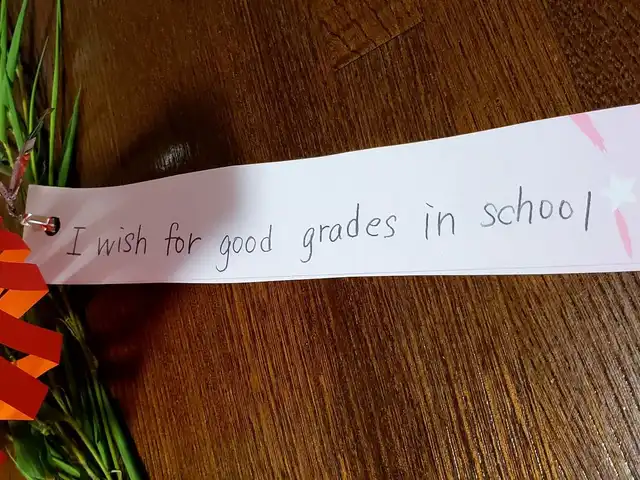 I wish for good grades in school